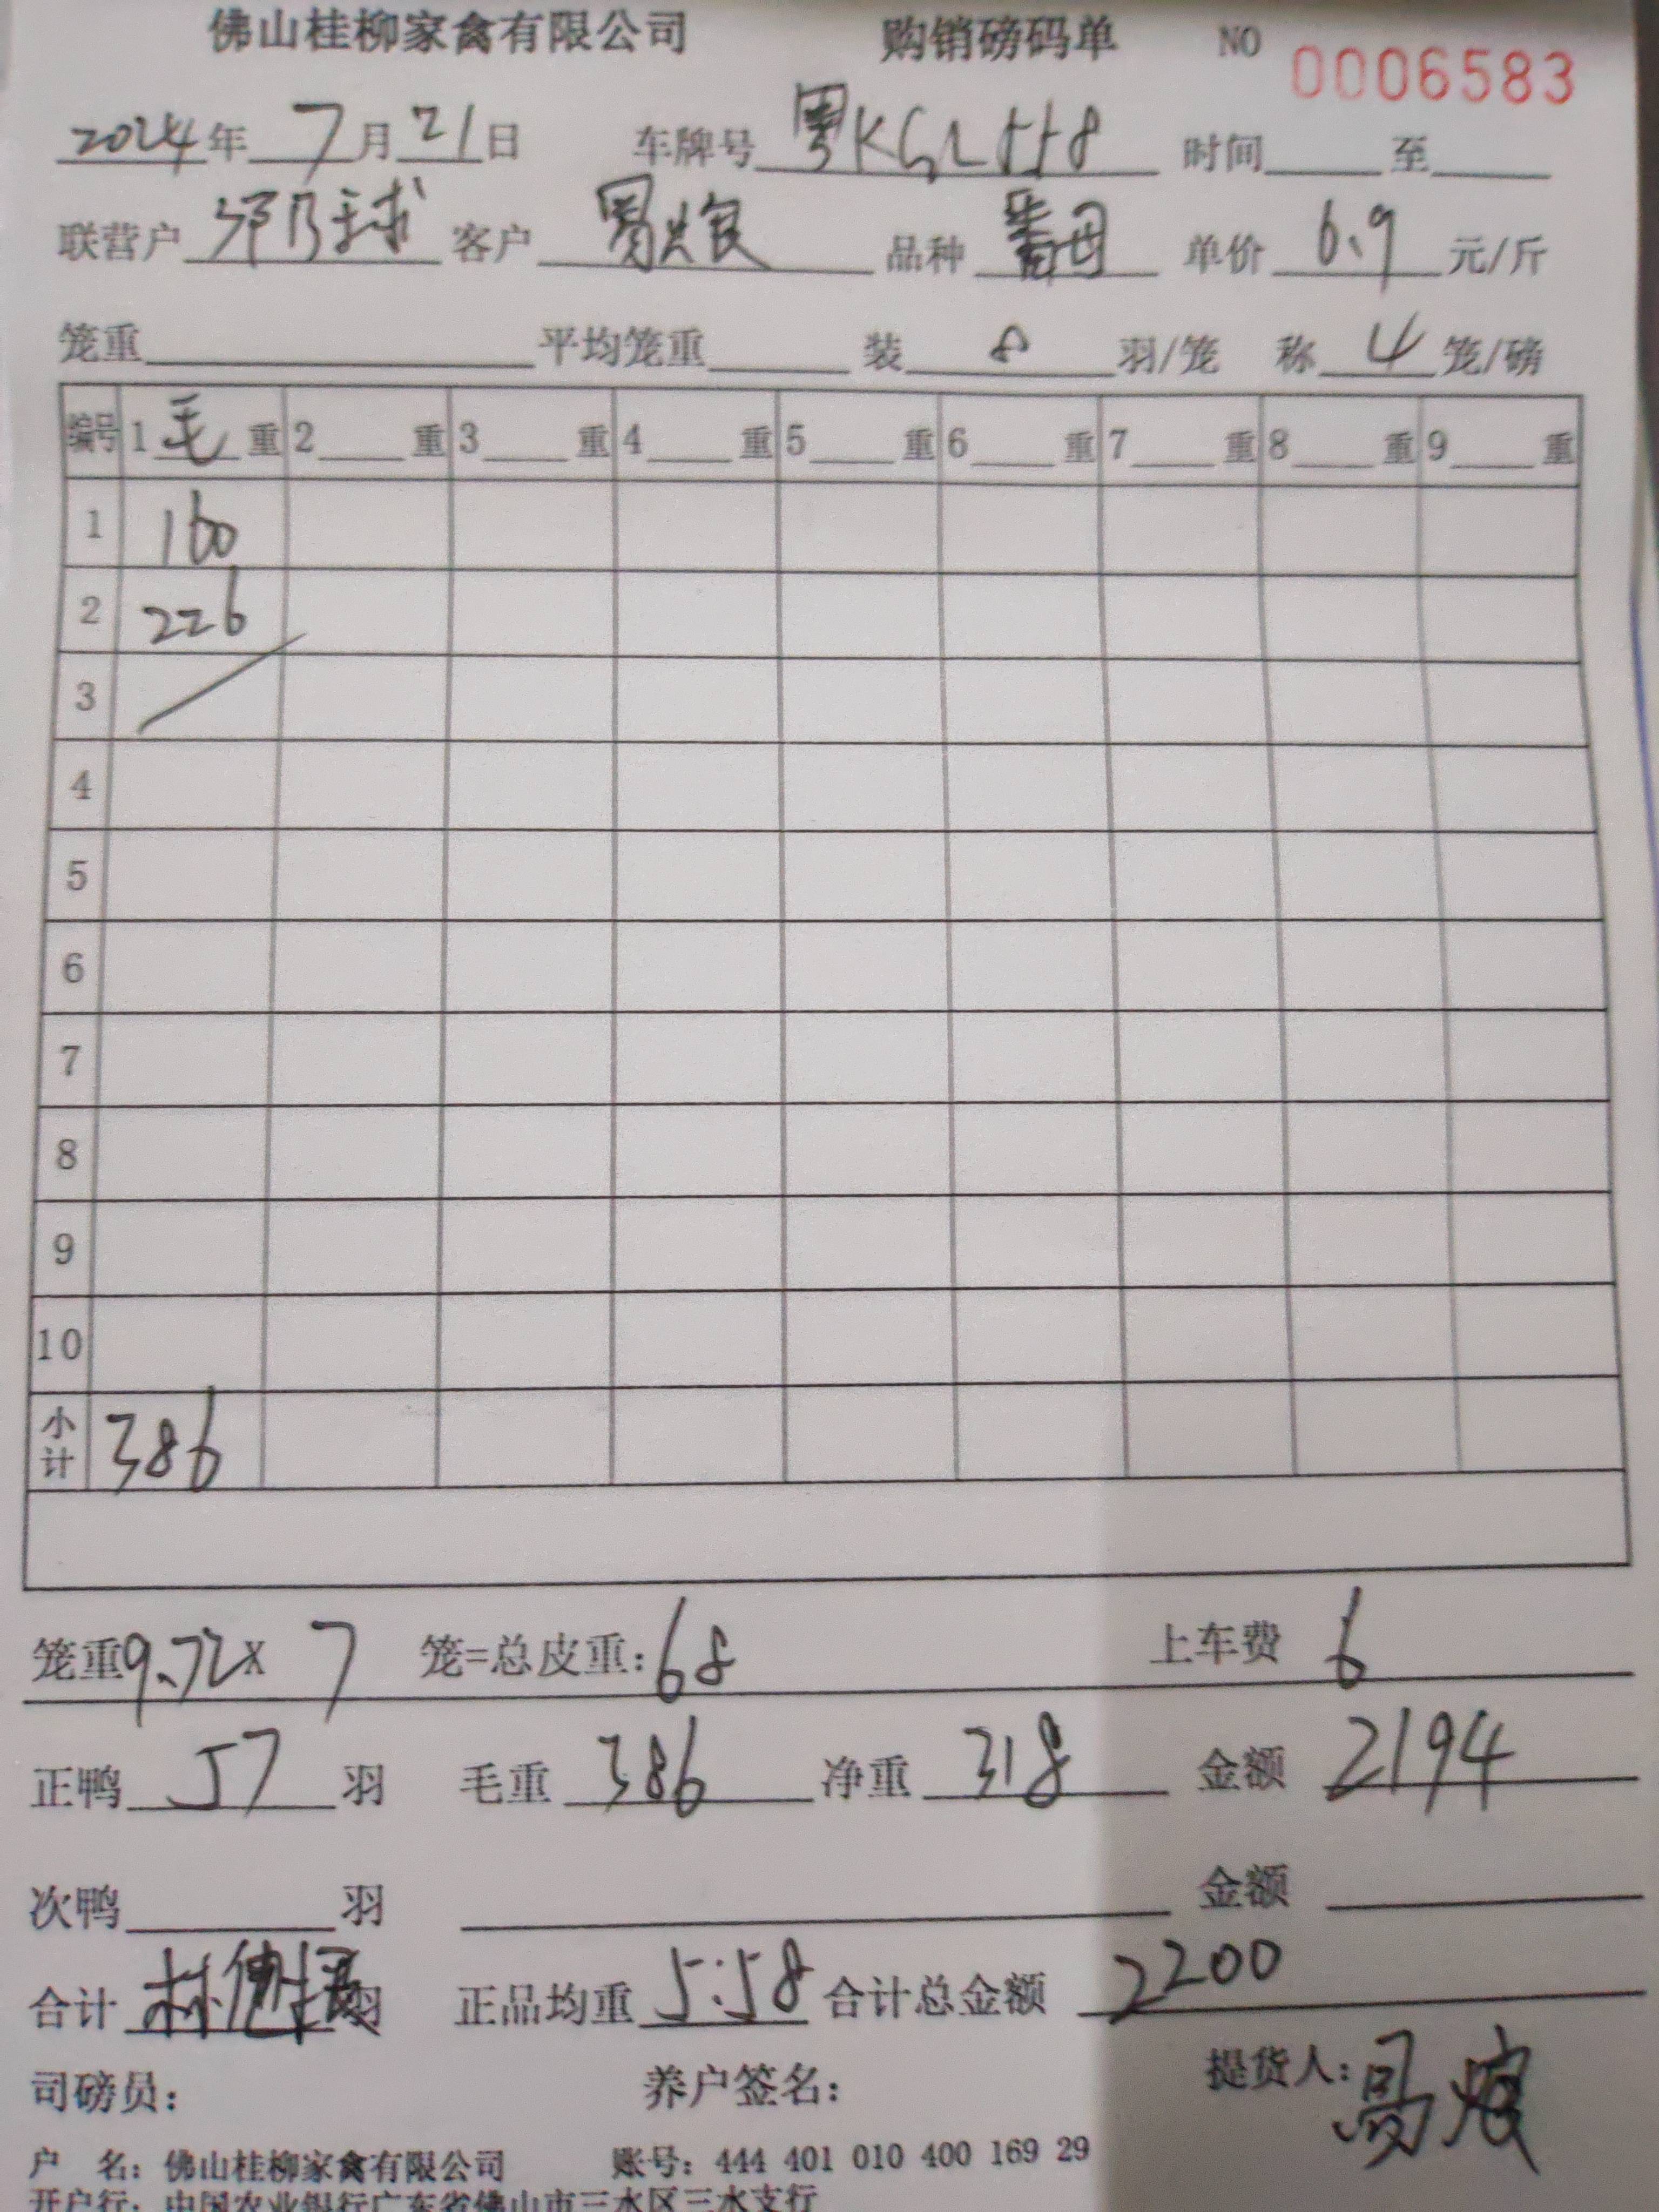 佛山桂柳家禽有限公司 购销磅码单 NO 0006583
2024年 7月 21日 车牌号 粤KGL558 时间 至
联营户 邓乃球 客户 品种 番母 单价 6.9 元/斤
笼重 平均笼重 装 8 羽/笼 称 4 笼/磅
编号 1 毛 重 2 重 3 重 4 重 5 重 6 重 7 重 8 重 9 重
1 160
2 226
3
4
5
6
7
8
9
10
小计 386
笼重9.72x 7 笼=总皮重:68 上车费 6
正鸭 57 羽 毛重 386 净重 318 金额 2194
次鸭 羽 金额
合计 羽 正品均重 5:58 合计总金额 2200
司磅员: 养户签名: 提货人:
户 名: 佛山桂柳家禽有限公司 账号: 444 401 010 400 169 29
开户行: 中国农业银行广东省佛山市三水区三水支行